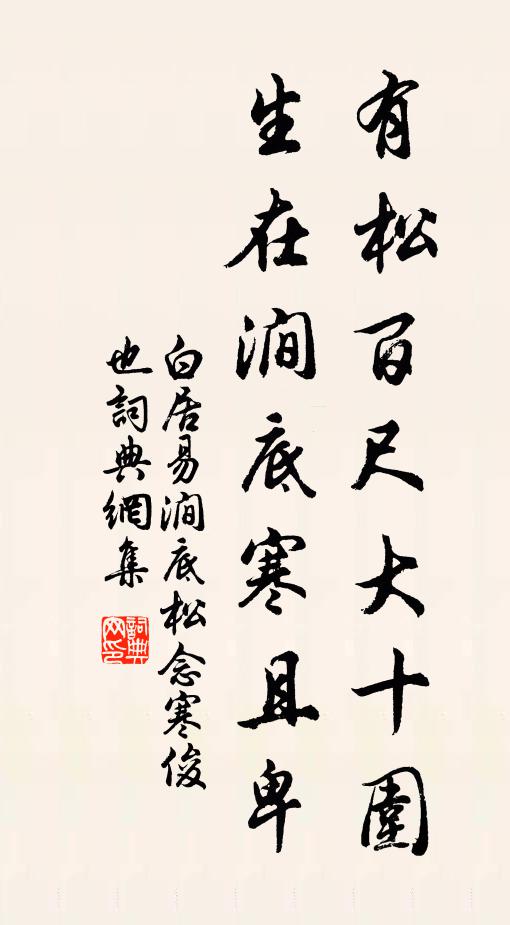 有松百尺大十圍
生在澗底寒且卑
白居易澗底松念寒俊
也詞典網集
詞典
网印